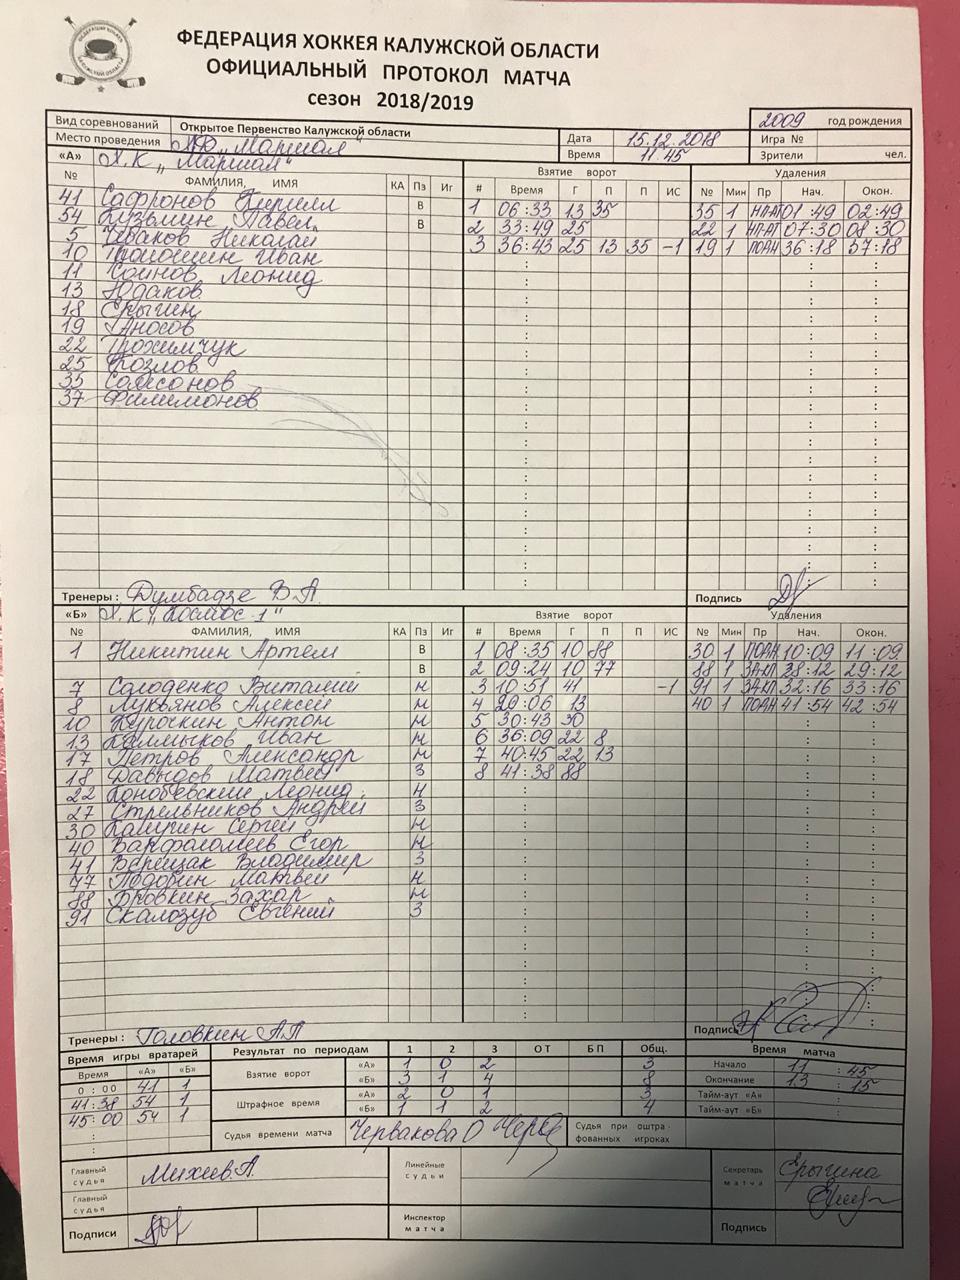 ФЕДЕРАЦИЯ ХОККЕЯ КАЛУЖСКОЙ ОБЛАСТИ
ОФИЦИАЛЬНЫЙ ПРОТОКОЛ МАТЧА
сезон 2018/2019
2009 год рождения
Вид соревнований Открытое Первенство Калужской области
Место проведения "Маршал" Дата 15.12.2018 Игра №
Время 11.45 Зрители чел.
«А» Х.К „Маршал"
Взятие ворот Удаления
№ ФАМИЛИЯ, ИМЯ КА Пз Иг # Время Г П П ИС № Мин Пр Нач. Окон.
41 Сафронов Кирилл В 1 06:33 13 35 35 1 НП-АТ 01:49 02:49
54 Кузьмин Павел В 2 33:49 25 22 1 НП-АТ 07:30 08:30
5 Чебаков Николай 3 36:43 25 13 35 -1 19 1 36:18 37:18
10 Иван
11 Соинов Леонид
13 Юдаков
18 Ерыгин
19 Аносов
22 Трохимчук
25 Козлов
35 Самсонов
37 Филимонов
Тренеры: Думбадзе В.А. Подпись
«Б» Х.К „Космос-1"
Взятие ворот Удаления
№ ФАМИЛИЯ, ИМЯ КА Пз Иг # Время Г П П ИС № Мин Пр Нач. Окон.
1 Никитин Артем В 1 08:35 10 88 30 1 10:09 11:09
В 2 09:24 10 77 88 1 28:12 29:12
7 Солоденко Виталий Н 3 10:51 41 -1 91 1 32:16 33:16
8 Лукьянов Алексей Н 4 29:06 13 40 1 41:54 42:54
10 Курочкин Антон Н 5 30:43 30
13 Калмыков Иван Н 6 36:09 22 8
17 Петров Александр Н 7 40:45 22 13
18 Давыдов Матвей З 8 41:38 88
22 Конобевский Леонид Н
27 Стрельников Андрей З
30 Сергей Н
40 Варфоломеев Егор Н
41 Верещак Владимир З
77 Матвей Н
88 Бровкин Захар Н
91 Скалозуб Евгений З
Тренеры: Головкин А.П Подпись
Время игры вратарей Результат по периодам 1 2 3 ОТ БП Общ. Время матча
Время «А» «Б»
0:00 41 1
41:38 54 1
45:00 54 1
Взятие ворот «А» 1 0 2 3
«Б» 3 1 4 8
Штрафное время «А» 2 0 1 3
«Б» 1 1 2 4
Начало 11:45
Окончание 13:15
Тайм-аут «А»
Тайм-аут «Б»
Судья времени матча Червакова О Судья при оштрафованных игроках
Главный судья Михеев А. Линейные судьи Секретарь матча Ерыгина
Главный судья
Подписи Инспектор матча Подпись